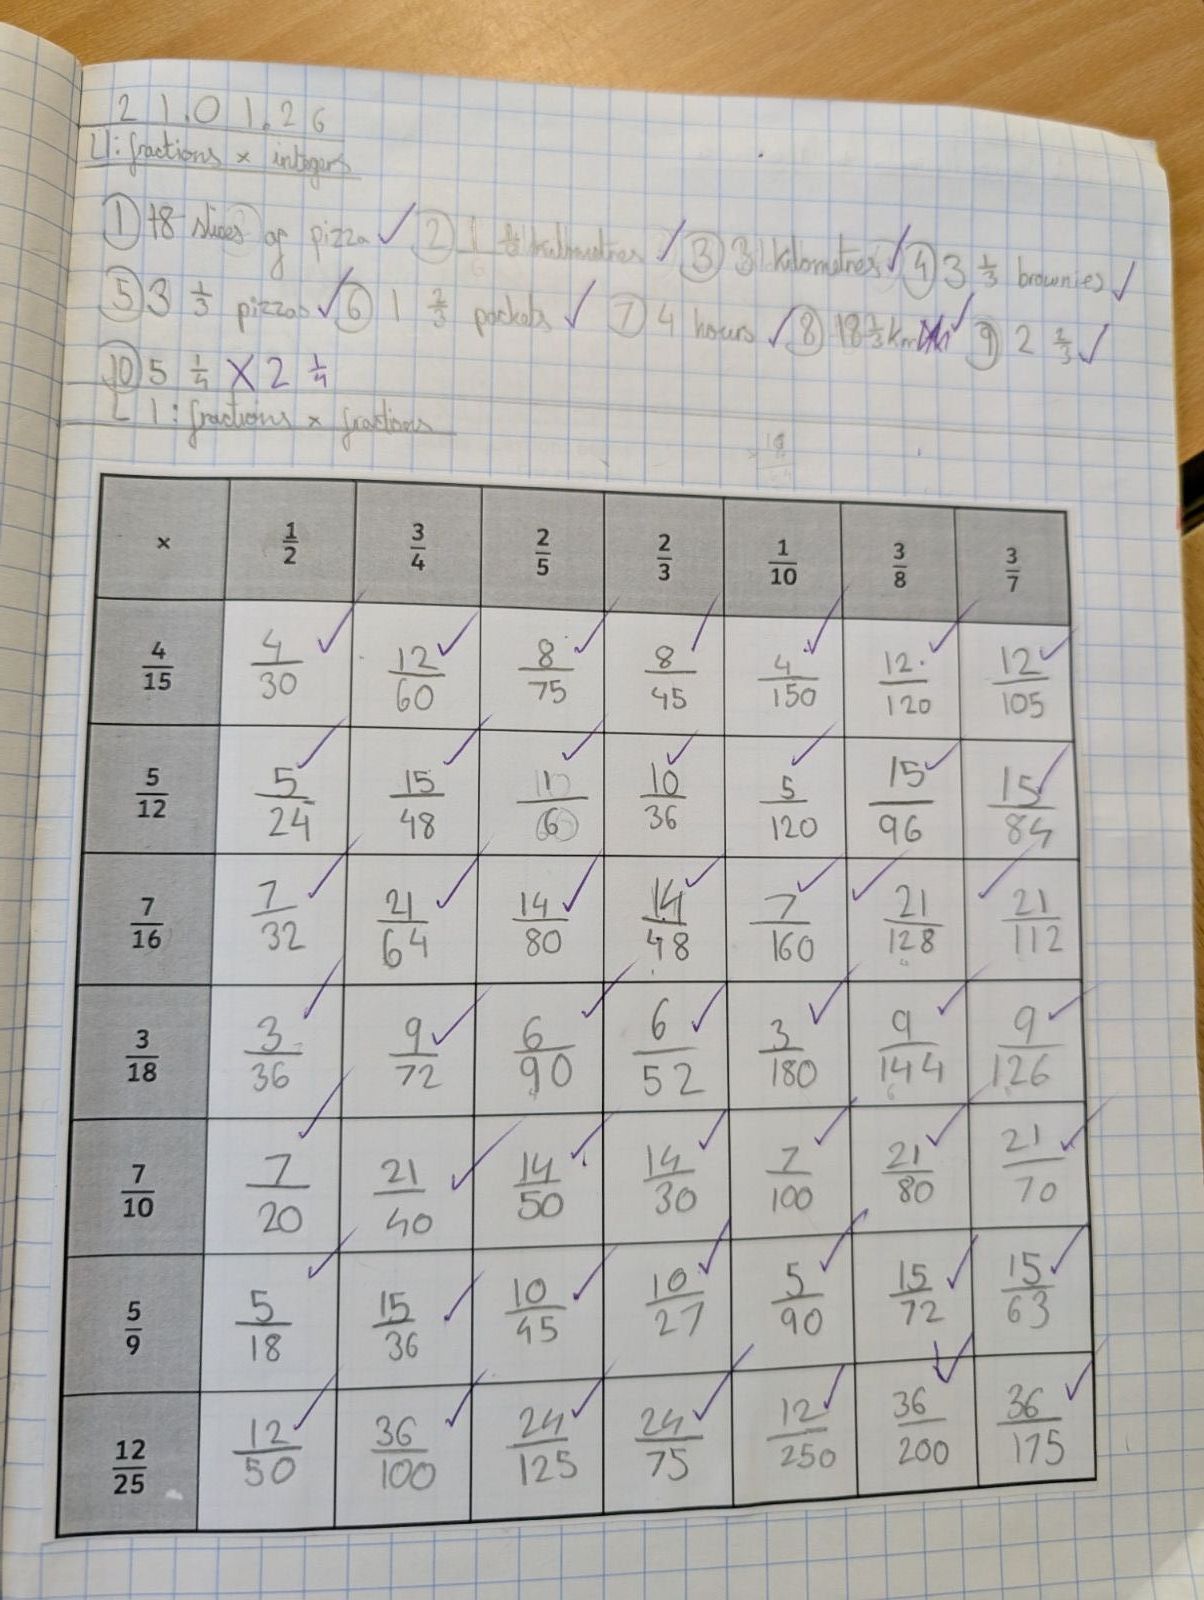 21.01.26
LI: fractions x integers
① 18 slices of pizza ✓ ② 1 kilometres ✓ ③ 31 kilometres ✓ ④ 3 1/3 brownies ✓
⑤ 3 1/3 pizzas ✓ ⑥ 1 2/3 packets ✓ ⑦ 4 hours ✓ ⑧ 18 1/3 km ✓ ⑨ 2 2/3 ✓
⑩ 5 1/4 X 2 1/4
LI: fractions x fractions
× 1/2 3/4 2/5 2/3 1/10 3/8 3/7
4/15 4/30 ✓ 12/60 ✓ 8/75 ✓ 8/45 ✓ 4/150 ✓ 12/120 ✓ 12/105 ✓
5/12 5/24 ✓ 15/48 ✓ 10/60 ✓ 10/36 ✓ 5/120 ✓ 15/96 ✓ 15/84 ✓
7/16 7/32 ✓ 21/64 ✓ 14/80 ✓ 14/48 ✓ 7/160 ✓ 21/128 ✓ 21/112 ✓
3/18 3/36 ✓ 9/72 ✓ 6/90 ✓ 6/52 ✓ 3/180 ✓ 9/144 ✓ 9/126 ✓
7/10 7/20 ✓ 21/40 ✓ 14/50 ✓ 14/30 ✓ 7/100 ✓ 21/80 ✓ 21/70 ✓
5/9 5/18 ✓ 15/36 ✓ 10/45 ✓ 10/27 ✓ 5/90 ✓ 15/72 ✓ 15/63 ✓
12/25 12/50 ✓ 36/100 ✓ 24/125 ✓ 24/75 ✓ 12/250 ✓ 36/200 ✓ 36/175 ✓